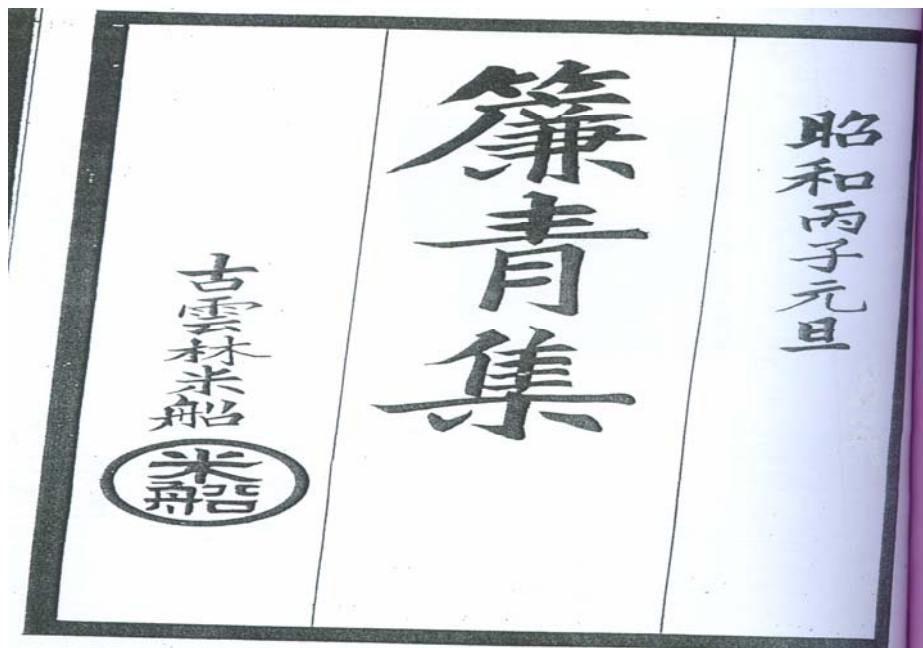 昭和丙子元旦
簾青集
古雲林米船
米船